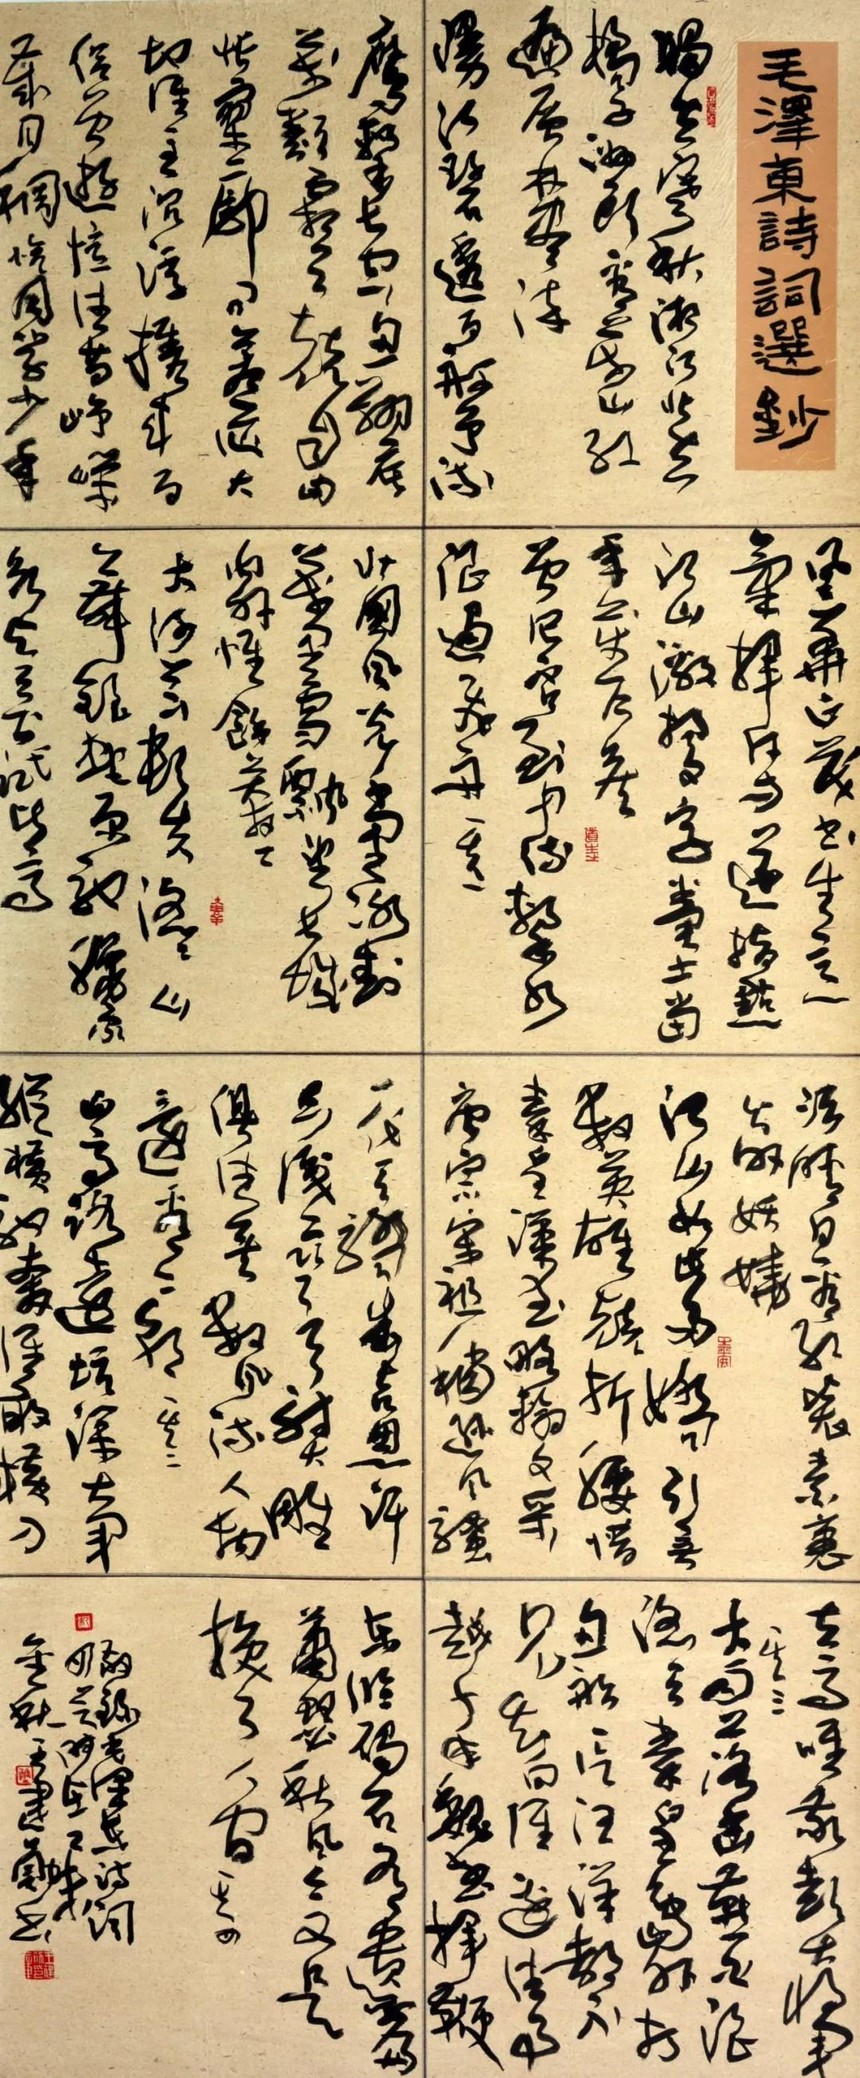 毛澤東詩詞選鈔
獨立寒秋湘江北去
橘子洲頭看萬山紅
遍層林盡染
漫江碧透百舸爭流
鷹擊長空魚翔底
萬類霜天競自由
悵寥廓問蒼茫大
地誰主沉浮攜來百
侶曾遊憶往昔崢嶸
歲月稠恰同學少年
風華正茂書生意
氣揮斥方遒指點
江山激揚文字糞土當
年萬戶侯
曾記否到中流擊水
浪遏飛舟 其一
北國風光千里冰封
萬里雪飄望長城
內外惟餘莽莽
大河上下頓失滔滔山
舞銀蛇原馳蠟象
欲與天公試比高
須晴日看紅裝素裹
分外妖嬈
江山如此多嬌引無
數英雄競折腰惜
秦皇漢武略輸文采
唐宗宋祖稍遜風騷
一代天驕成吉思汗
只識彎弓射大雕
俱往矣數風流人物
還看今朝 其二
山高路遠坑深大軍
縱橫馳奔誰敢橫刀
立馬唯我彭大將軍
其三
大雨落幽燕白浪
滔天秦皇島外打
魚船一片汪洋都不
見知向誰邊往事
越千年魏武揮鞭
東臨碣石有遺篇
蕭瑟秋風今又是
換了人間 其四
敬錄毛澤東詩詞
四首時在
金秋王建書